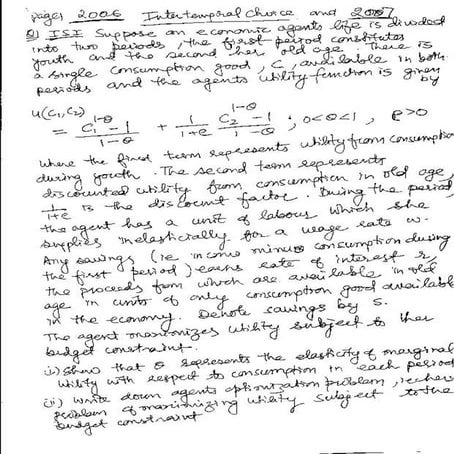 pages 2006 Intertemporal Choice and 2007
Q) ISI Suppose an economic agents life is divided
into two periods, the first period constitutes
youth and the second her old age. There is
a single consumption good, C, available in both
periods and the agents utility function is given
by
u(C1, C2)
= C1^{1-θ} - 1 / 1-θ + 1/1+e C2^{1-θ} - 1 / 1-θ ; 0<θ<1, e>0
where the first term represents utility from consumption
during youth. The second term represents
discounted utility from consumption in old age,
1/1+e is the discount factor. During the period
the agent has a unit of labour which she
supplies inelastically for a wage rate w.
Any savings (ie income minus consumption during
the first period) earns rate of interest r,
the proceeds from which are available in old
age in units of only consumption good available
in the economy. Denote savings by s.
The agent maximizes utility subject to her
budget constraint.
i) Show that θ represents the elasticity of marginal
utility with respect to consumption in each period
ii) write down agents optimization problem, ie her
problem of maximizing utility subject to the
budget constraint